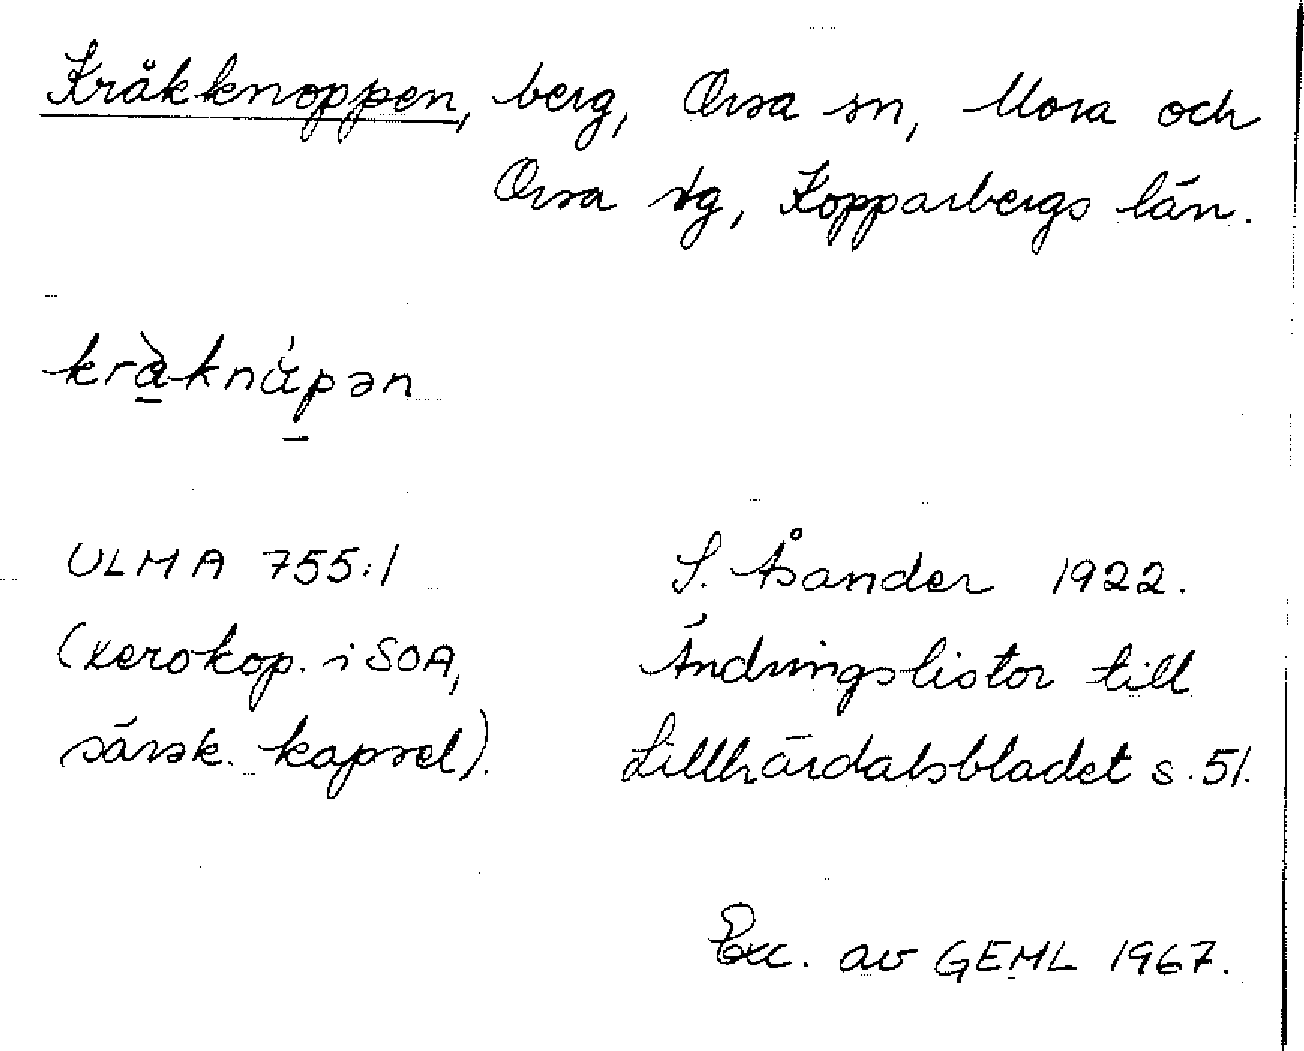 Kråkknoppen, berg, Orsa sn, Mora och
Orsa tg, Kopparbergs län.
kràknápən
ULMA 755:1
(xerokop. i SOA,
särsk. kapsel).
S. Åsander 1922.
Ändringslistor till
Lillhärdalsbladet s. 51.
Exc. av GEML 1967.